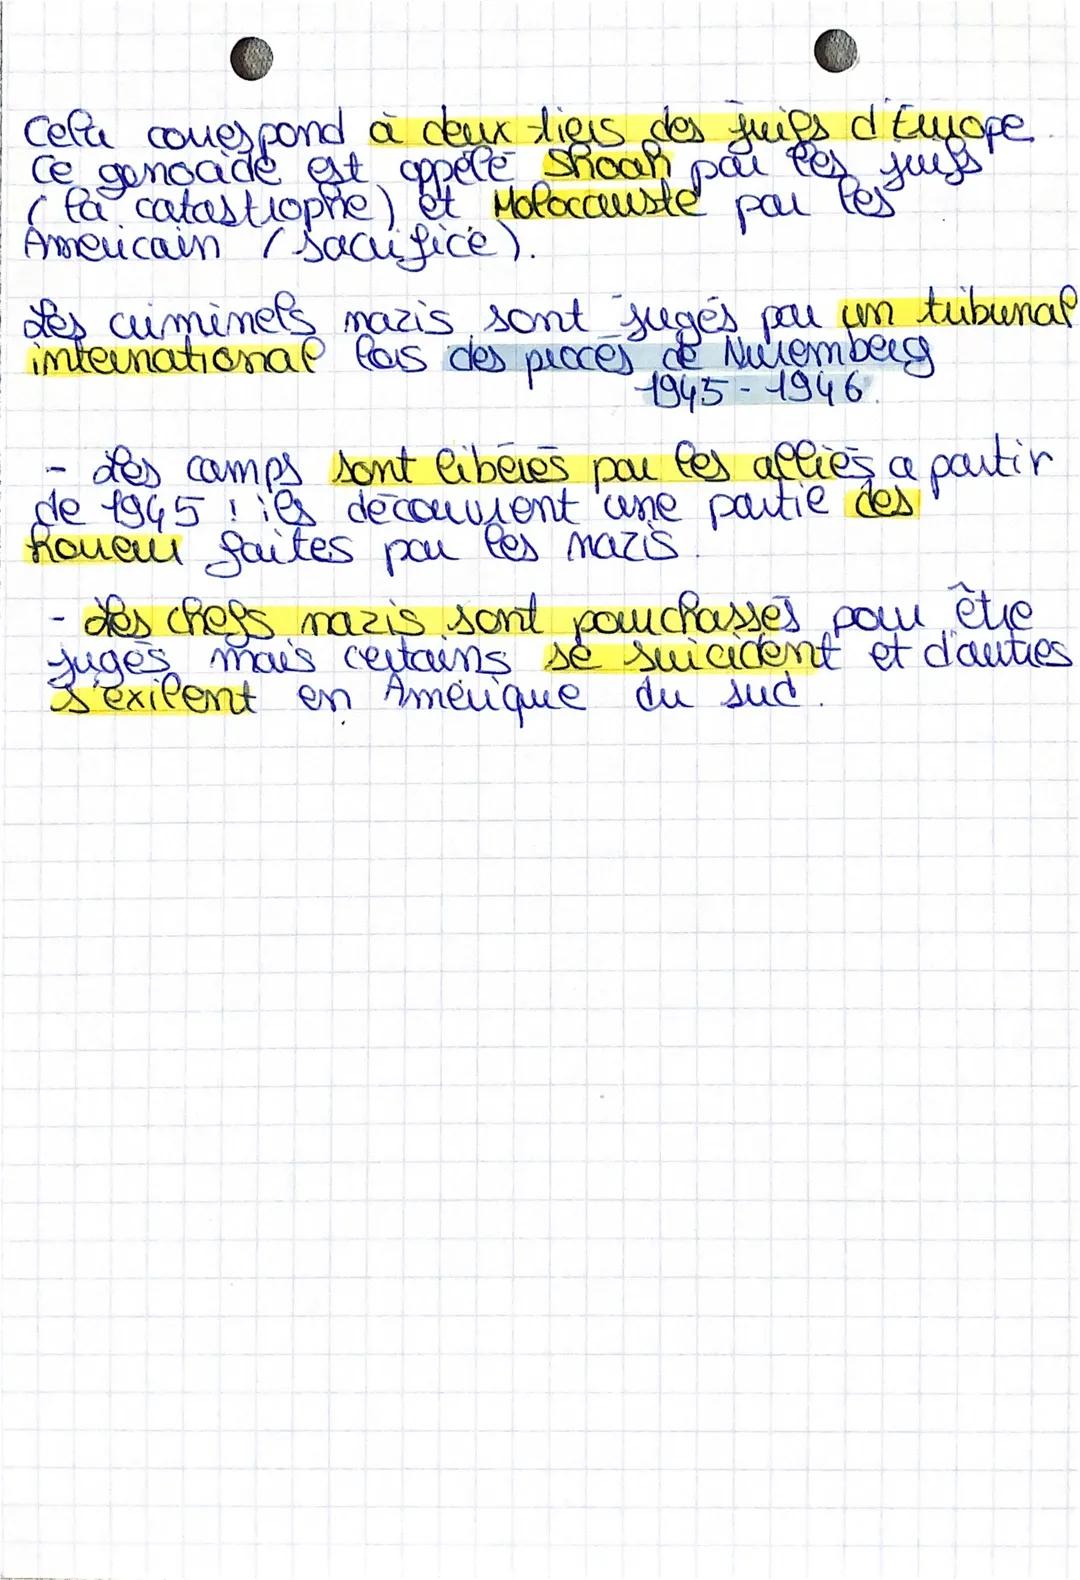 Cela correspond à deux tiers des juifs d'Europe.
Ce genocide est appelé Shoah par les juifs
(la catastrophe) et Holoccauste par les
Américain (sacrifice).
Les criminels nazis sont jugés par un tribunal
international lors des procès de Nuremberg
1945 - 1946.
- Les camps sont libérés par les alliés a partir
de 1945 : ils découvrent une partie des
horreur faites par les nazis.
- Les chefs nazis sont pourchassés pour être
jugés mais certains se suicident et d'autres
s'exilent en Amérique du sud.